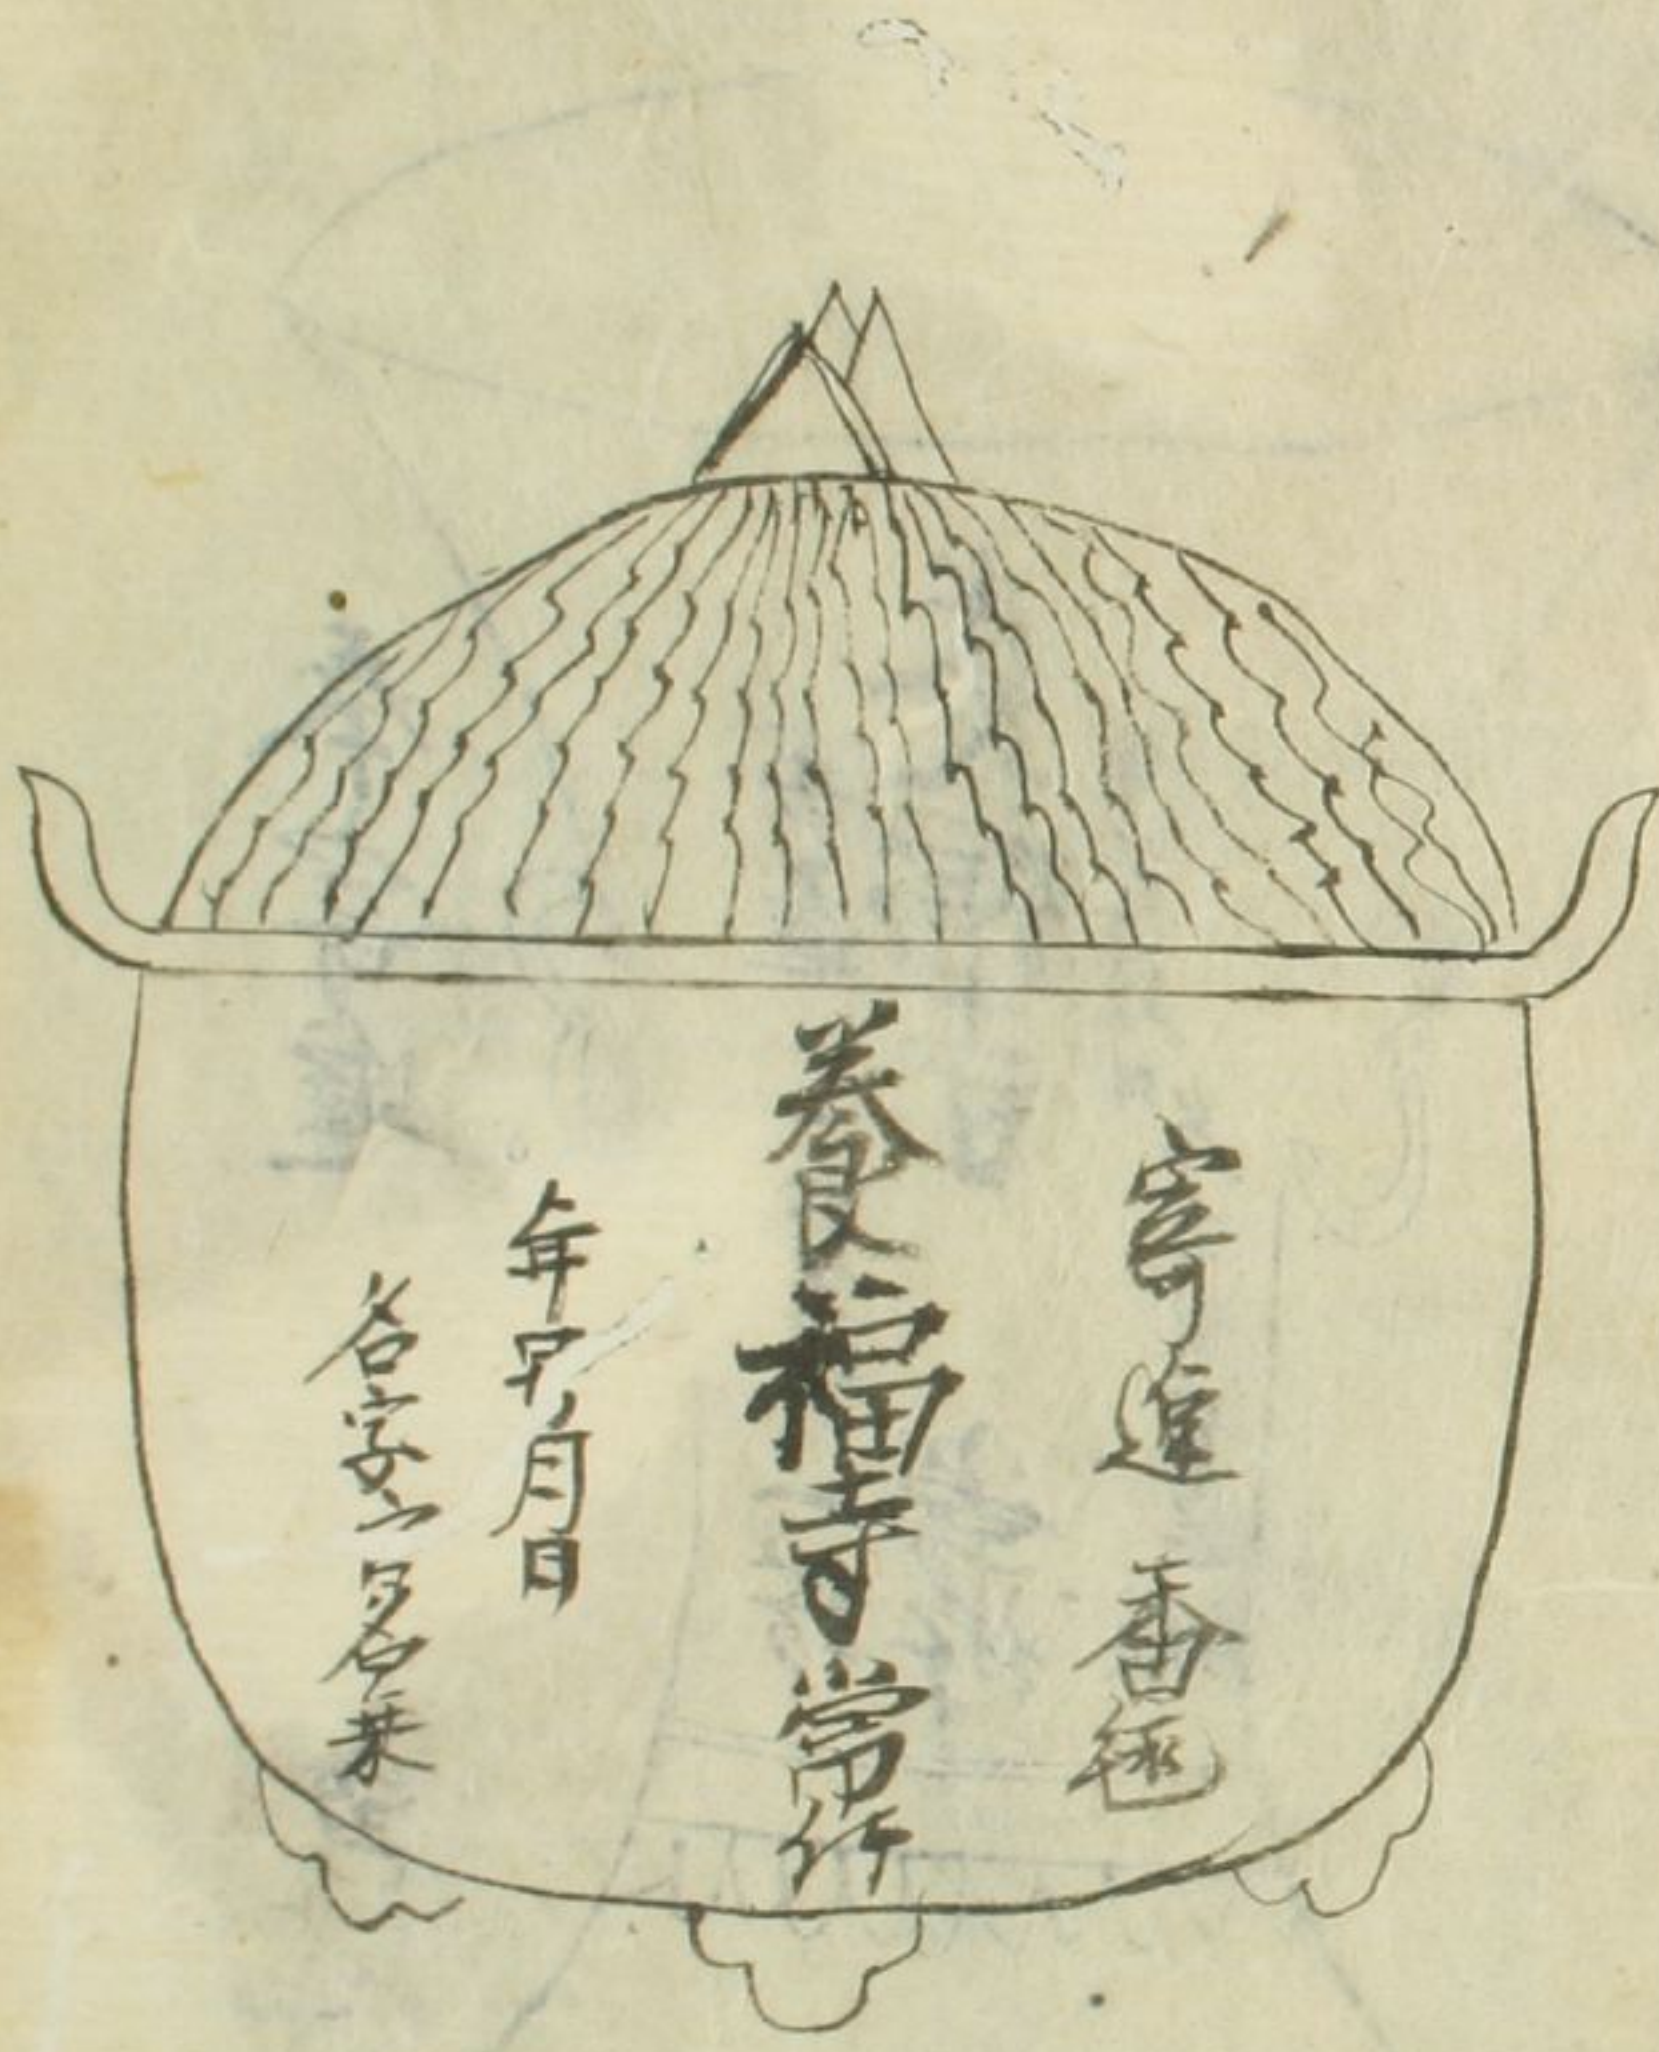 寄進 香
養福寺常什
年号月日
名字 名乗